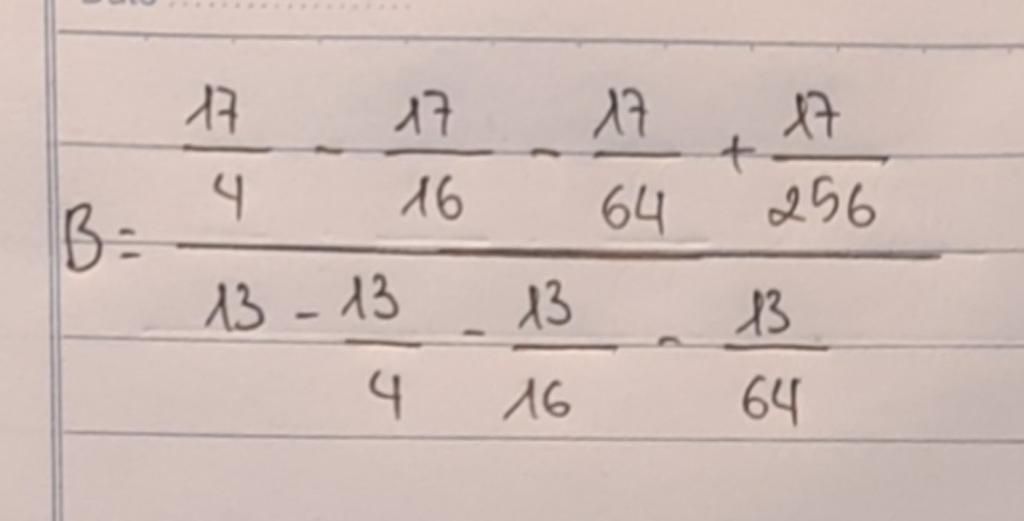 17/4 - 17/16 - 17/64 + 17/256
B=
13 - 13/4 - 13/16 - 13/64